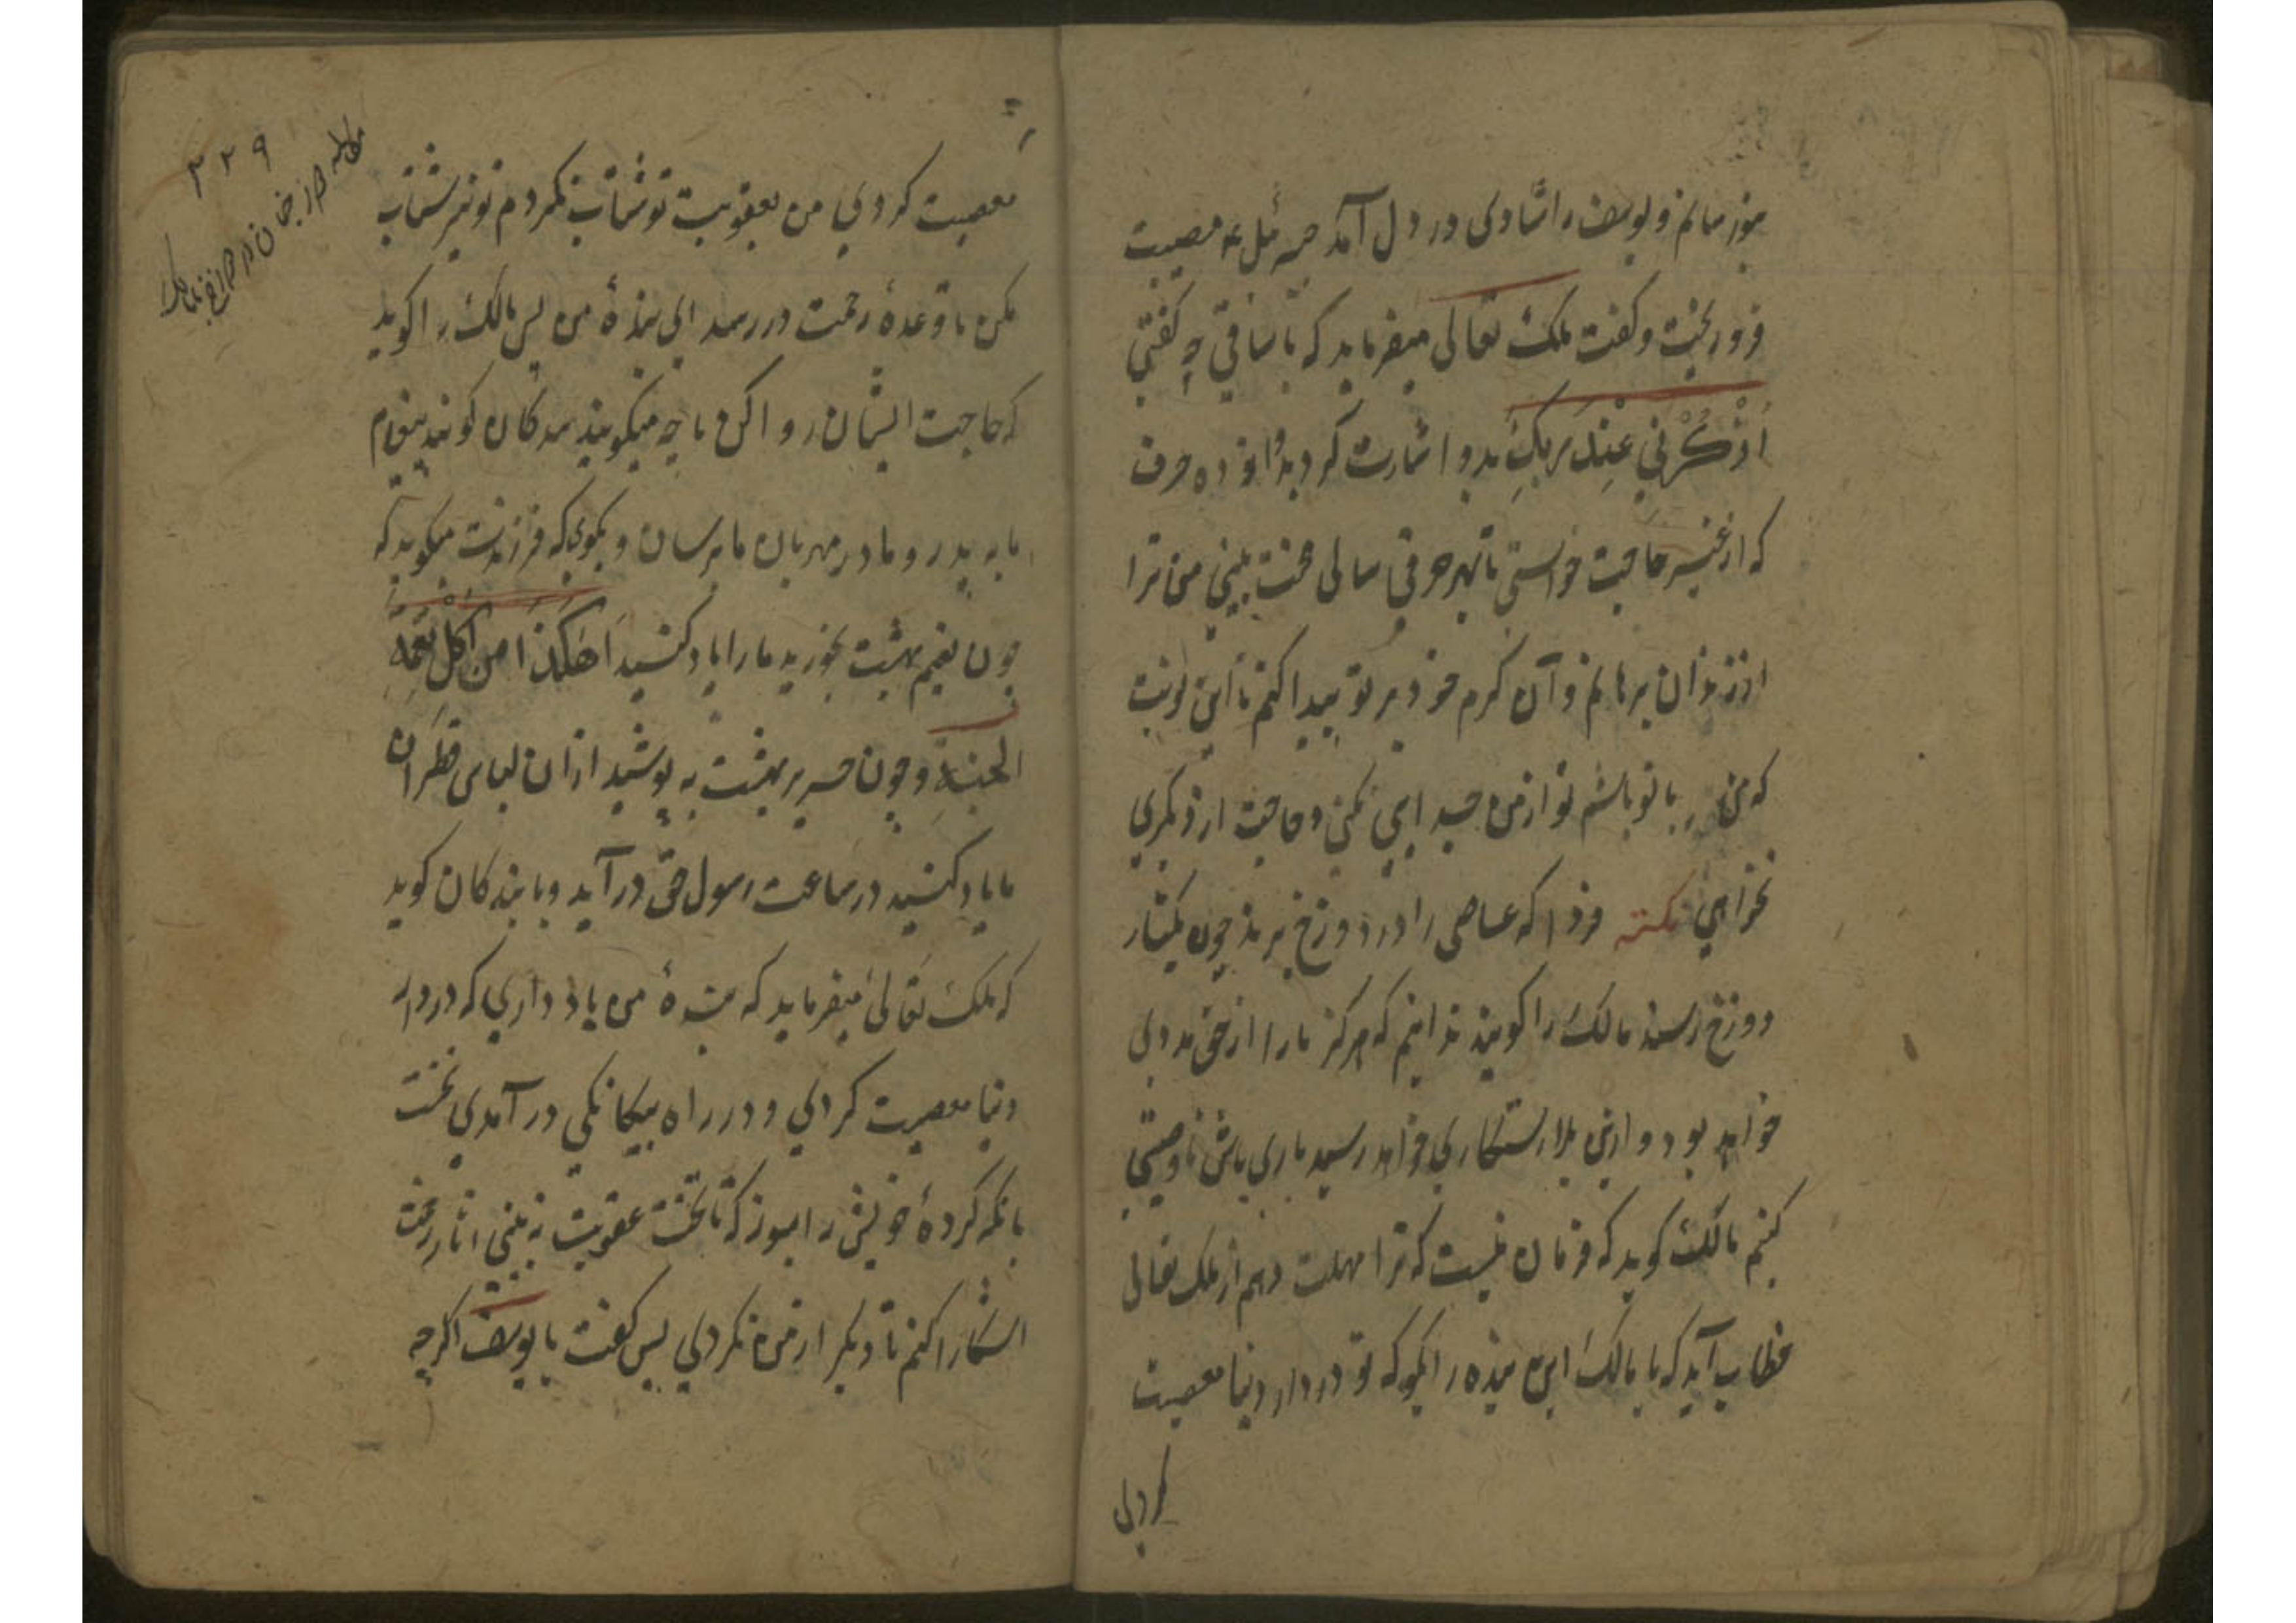 بنوازمانم و یوسف را شادی در دل آمد جبرئیل ع م مصیبت
فرو ریخت و کفت ملک تعالی میفرماید که با ساقی چه کفتی
اُذْکُرْنِي عِنْدَ رَبِّكَ بدو اشارت کرد بدان ده حرف
که از غیر حاجت خواستی تا بهر حرفی سالی محنت بینی من ترا
از زندان برهانم و آن کرم خود بر تو پیدا کنم تا این نوبت
که من با تو باشم تو از من جدایی نکنی و حاجت از دیکری
نخواهی نکته فردا که عاصی را در دوزخ برند چون بکنار
دوزخ رسند مالک را کویند ندانیم که هرکز ما را ازحق مددی
خواهد بود و ازین بلا رستکاری خواهد رسید باری باش تا وصیتی
کنیم مالک کوید که فرمان نیست که ترا مهلت دهم از ملک تعالی
خطاب آید که یا مالک این بنده را بکو که تو در دار دنیا معصیت
کردی
۳۲۹
معصیت کردی من بعقوبت تو شتاب نکردم تو نیز شتاب
مکن تا وعدهٔ رحمت در رسد ای بندهٔ من پس مالک را کوید
که حاجت ایشان روا کن تا چه میکویند بندکان کویند پیغام
ما به پدر و مادر مهربان ما برسان و بکوی که فرزندت میکوید که
چون نعیم بهشت بخورید ما را یاد کنید اَهٰکَذَا مَن اَکَلَ نِعْمَةِ
الجنةِ و چون حریر بهشت به پوشید ازان لباس قطران
ما یاد کنید در ساعت رسول حق در آید و با بندکان کوید
که ملک تعالیٰ میفرماید که بندهٔ من یاد داری که در دار
دنیا معصیت کردی و در راه بیکانکی در آمدی نخست
بانکه کردهٔ خویش را بسوز که تا نخست عقوبت نه بینی اثار رحمت
اشکارا کنم تا دیکر از من نکردی پس کفت یا یوسف اکرچه